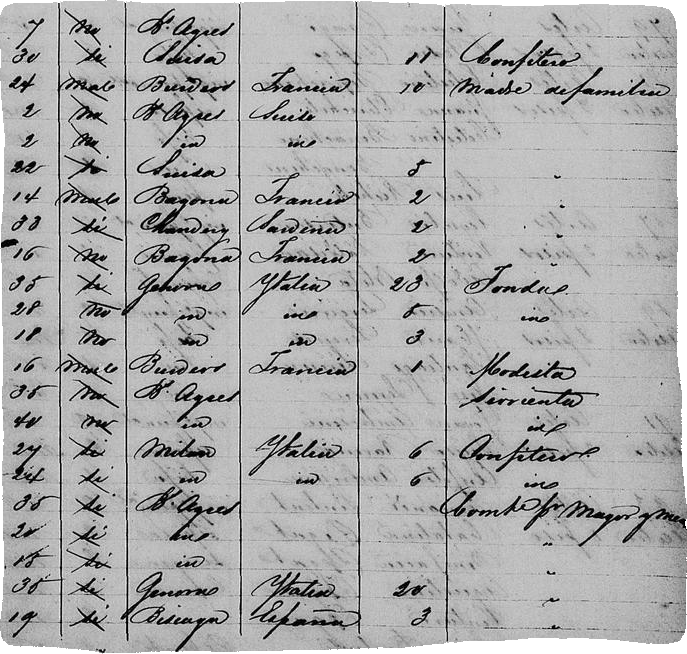 7 no Bs Ayres
30 si Suisa 11 Confitero
24 Malo Burdeos Francia 10 Madre de familia
2 no Bs Ayres Suiso
2 no id id
22 si Suisa 5 "
14 Malo Bayona Francia 2 "
33 si Sardeña 2 "
16 no Bayona Francia 2 "
35 si Genova Ytalia 23 Fonda
28 no id id 5 id
18 no id id 3
16 Malo Burdeos Francia 1 Modista
35 no Bs Ayres Sirvienta
40 no id id
27 si Milan Ytalia 6 Confitero
24 si id id 6 id
35 si Bs Ayres Comte pr Mayor y Men
20 si id "
15 si id "
35 si Genova Ytalia 20 "
19 si Biscaya España 3 "